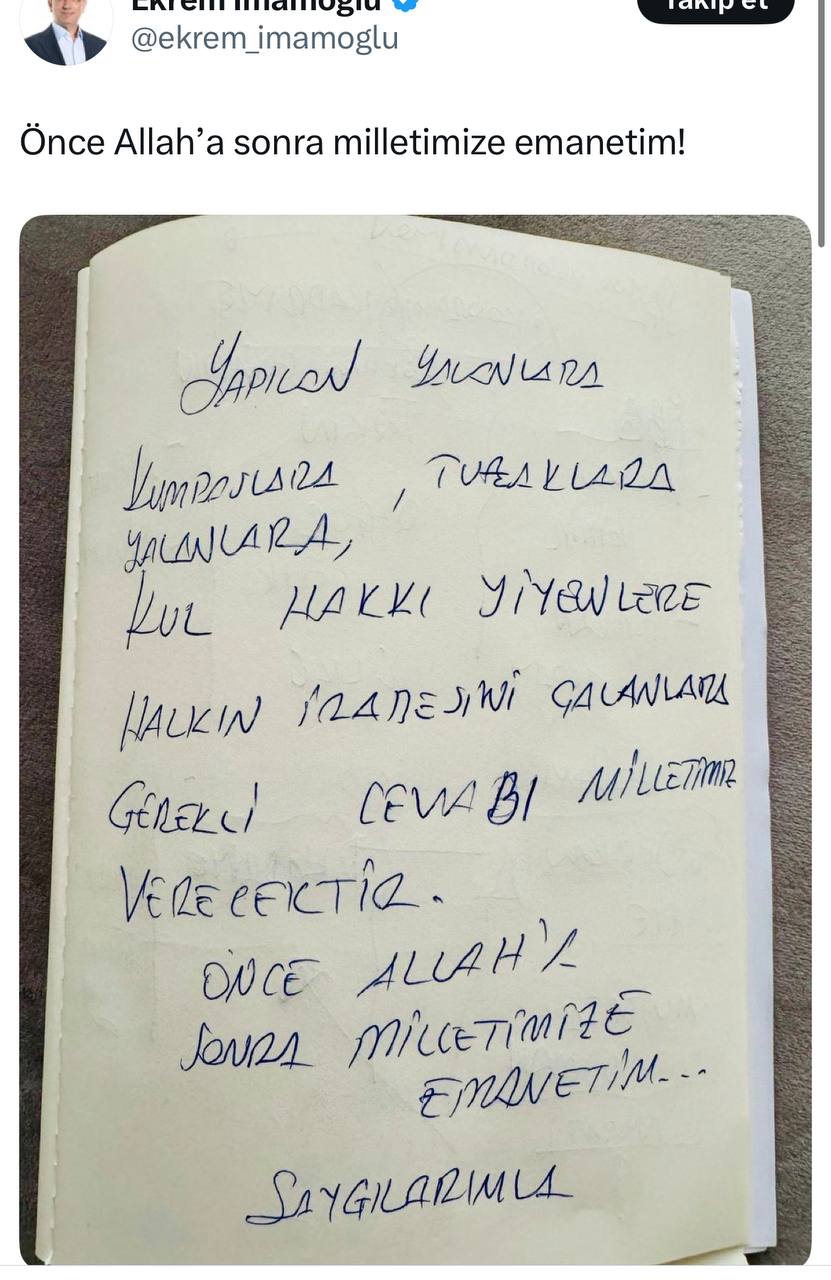 Ekrem İmamoğlu
Takip et
@ekrem_imamoglu
Önce Allah’a sonra milletimize emanetim!
YAPILAN YALANLARA
KUMPASLARA , TUZAKLARA
YALANLARA,
KUL HAKKI YİYENLERE
HALKIN İRADESİNİ ÇALANLARA
GEREKLİ CEVABI MİLLETİMİZ
VERECEKTİR.
ÖNCE ALLAH'A
SONRA MİLLETİMİZE
EMANETİM...
SAYGILARIMLA